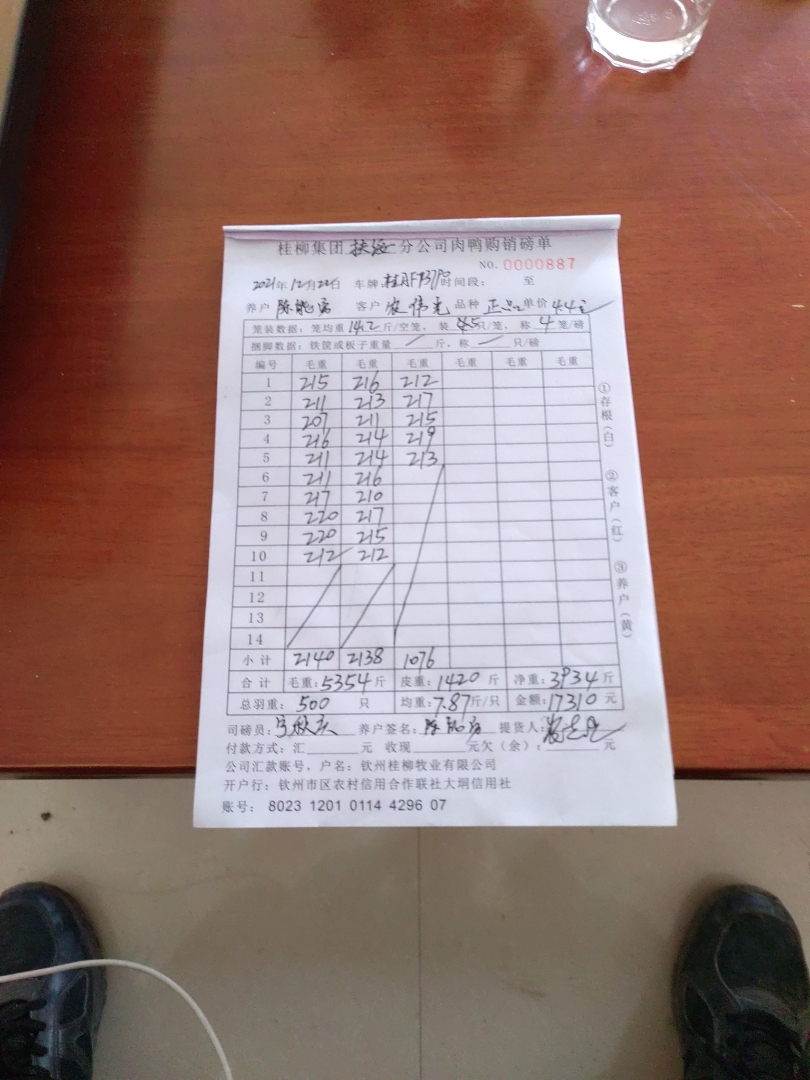 桂柳集团 扶绥 分公司肉鸭购销磅单
NO. 0000887
2021年12月22日 车牌: 时间段: 至
养户 客户 农伟光 品种 正品 单价 4.4元
笼装数据: 笼均重 14.2 斤/空笼, 装 只/笼, 称 4 笼/磅
捆脚数据: 铁筐或板子重量 / 斤, 称 / 只/磅
编号 毛重 毛重 毛重 毛重 毛重 毛重
1 215 216 212
2 211 213 217
3 207 211 215
4 216 214 219
5 211 214 213
6 211 216
7 217 210
8 220 217
9 220 215
10 212 212
11
12
13
14
小计 2140 2138 1076
合计 毛重: 5354 斤 皮重: 1420 斤 净重: 3934 斤
总羽重: 500 只 均重: 7.87 斤/只 金额: 17310 元
司磅员: 养户签名: 提货人:
付款方式: 汇______元 收现______元欠(余): ______元
公司汇款账号, 户名: 钦州桂柳牧业有限公司
开户行: 钦州市区农村信用合作联社大垌信用社
账号: 8023 1201 0114 4296 07
①存根(白)
②客户(红)
③养户(黄)